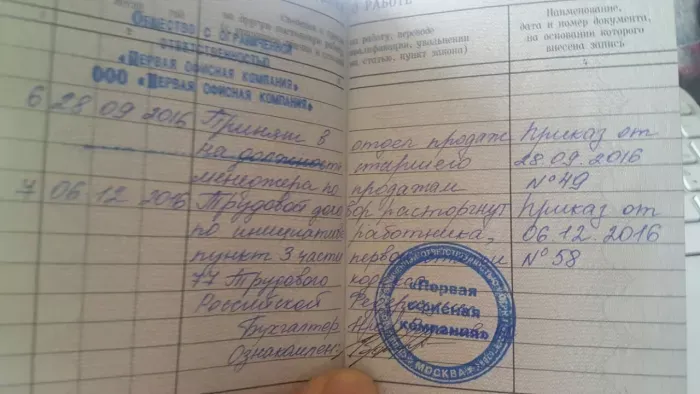 РАБОТЕ
на работу, переводе
квалификации, увольнении
на статью, пункт закона)
Наименование,
дата и номер документа,
на основании которого
внесена запись
4
Общество с ограниченной
ответственностью
«Первая офисная компания»
ООО «Первая офисная компания»
6 28 09 2016 Принят в отдел продаж Приказ от
на должность старшего 28.09.2016
менеджера по продажам № 49
7 06 12 2016 Трудовой договор расторгнут Приказ от
по инициативе работника, 06.12.2016
пункт 3 части первой № 58
77 Трудового кодекса
Российской
Бухгалтер
Ознакомлен
«Первая
офисная
компания»
МОСКВА